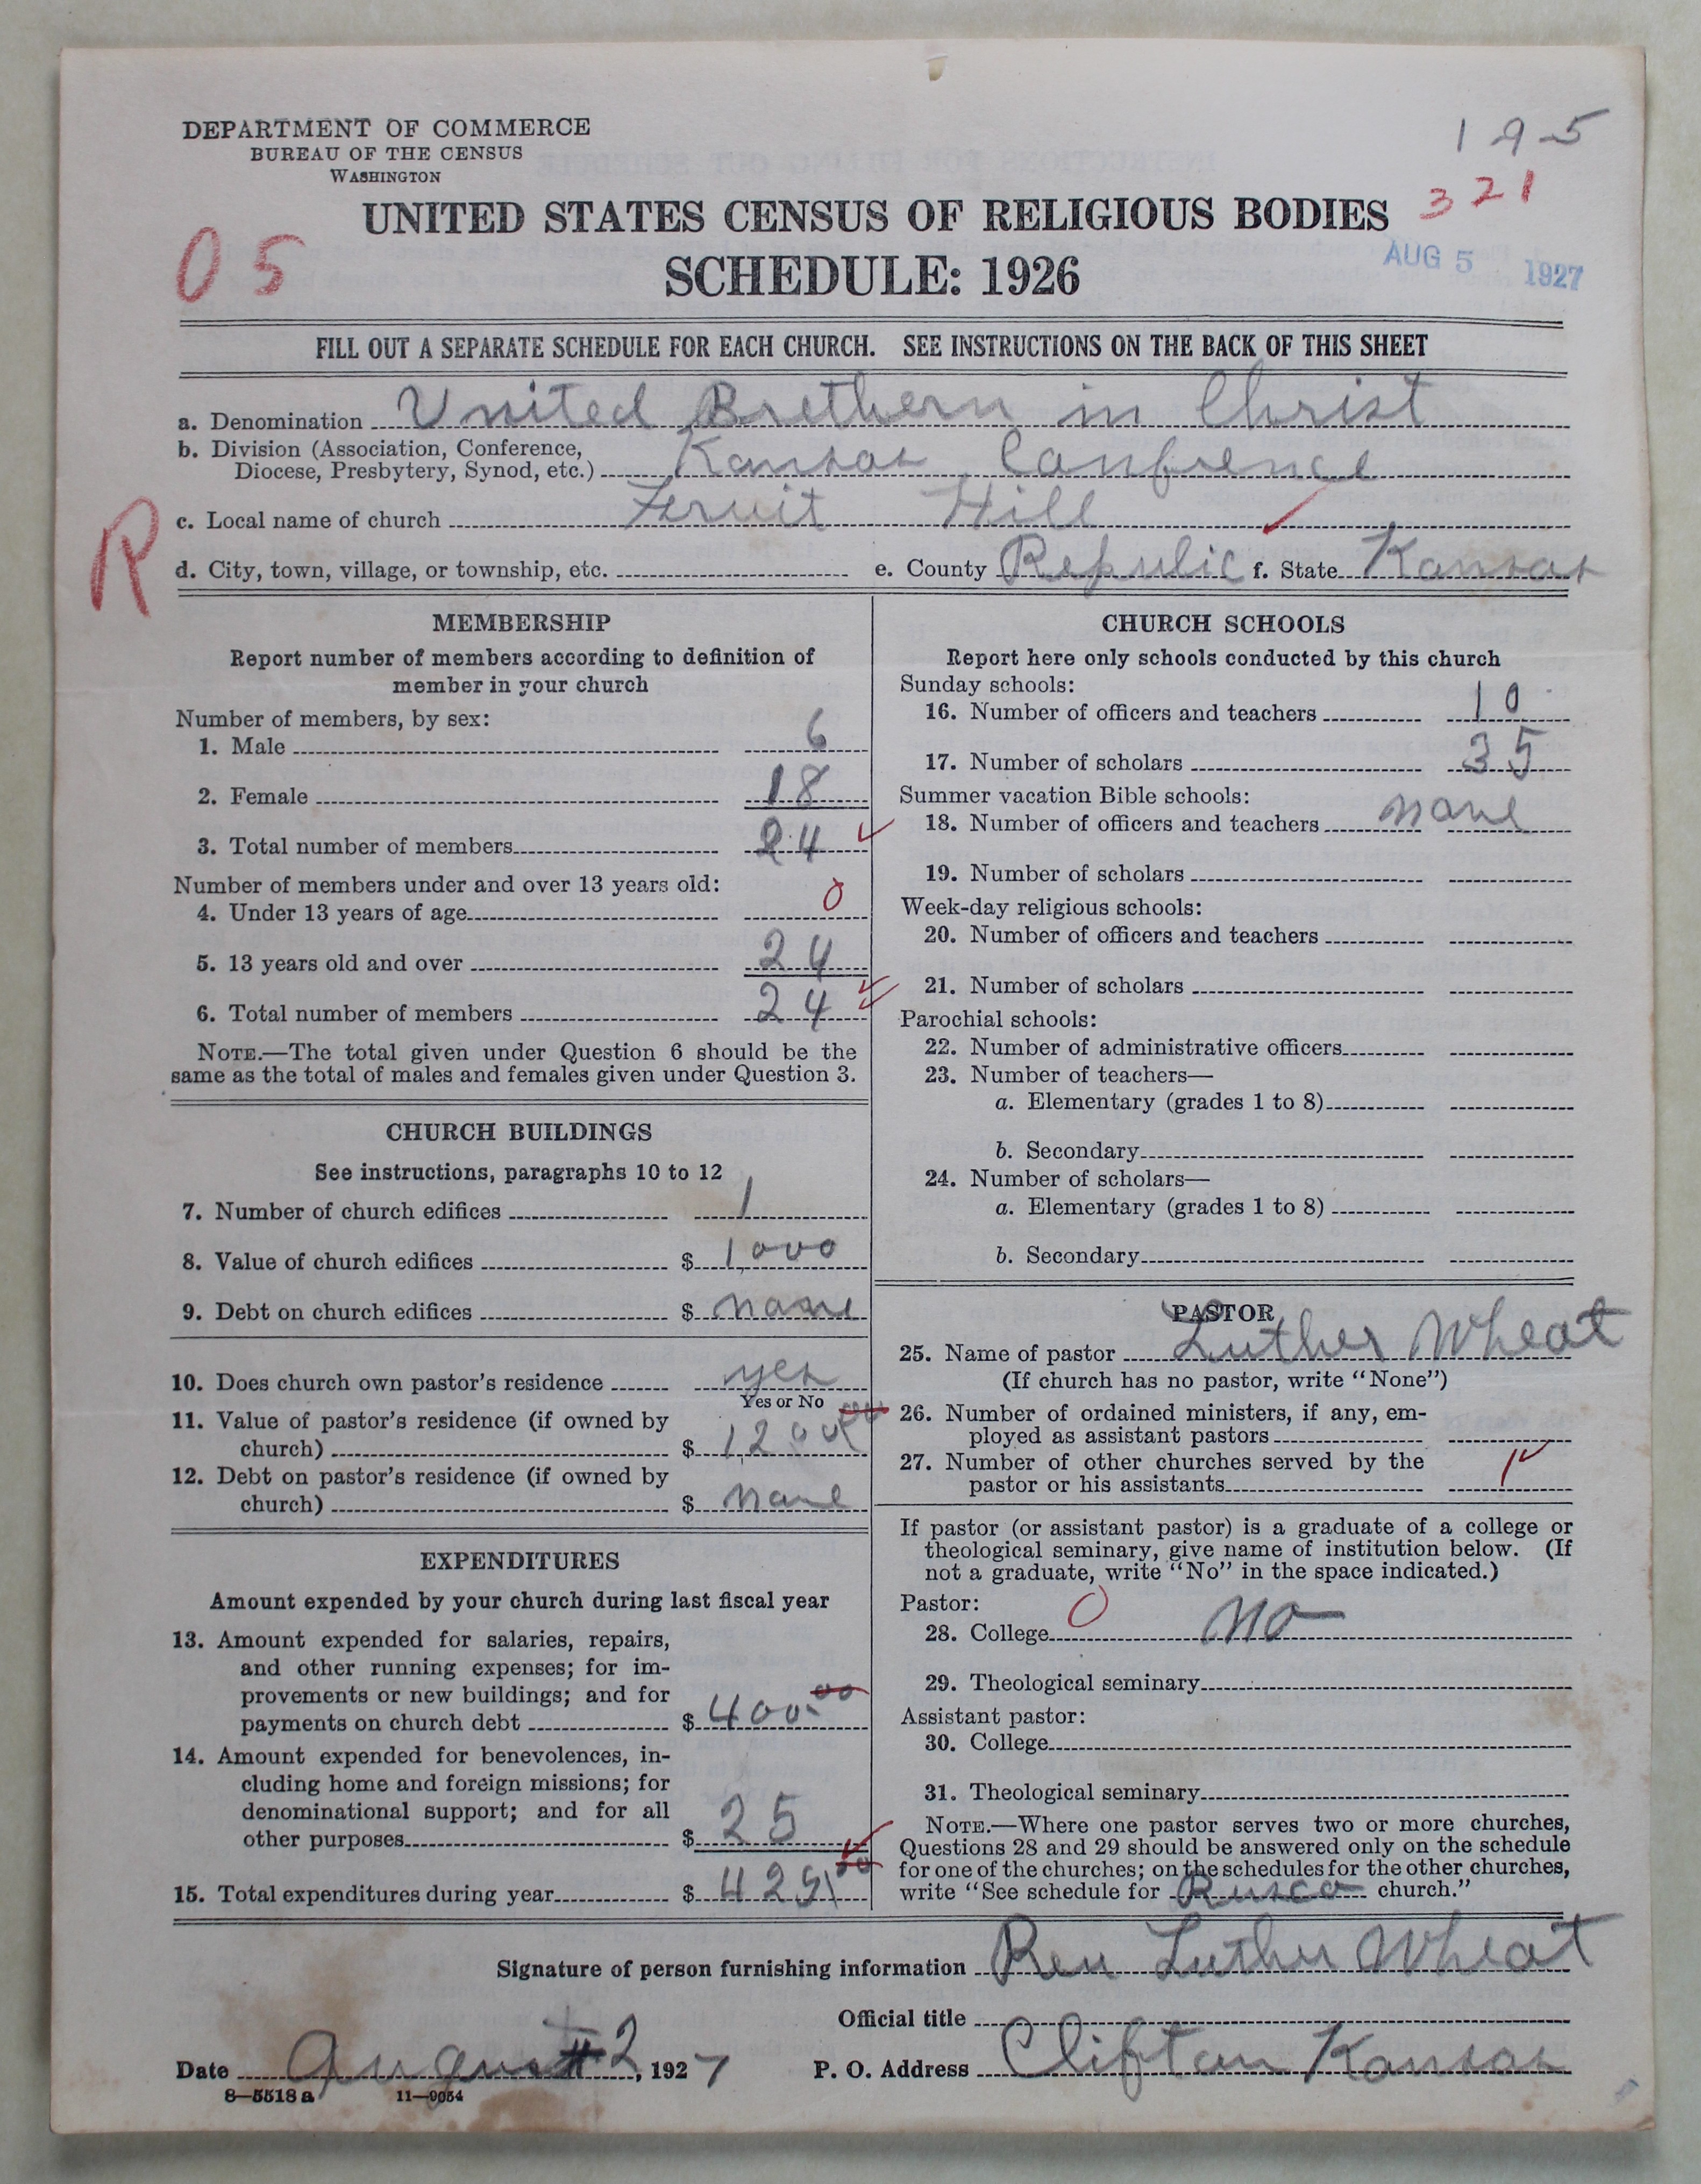 DEPARTMENT OF COMMERCE
BUREAU OF THE CENSUS
WASHINGTON
195
321
UNITED STATES CENSUS OF RELIGIOUS BODIES
05
SCHEDULE: 1926
AUG 5 1927
FILL OUT A SEPARATE SCHEDULE FOR EACH CHURCH. SEE INSTRUCTIONS ON THE BACK OF THIS SHEET
a. Denomination United Brethern in Christ
b. Division (Association, Conference,
Diocese, Presbytery, Synod, etc.) Kansas Confrence
R
c. Local name of church Fruit Hill
d. City, town, village, or township, etc. e. County Repulic f. State Kansas
MEMBERSHIP
Report number of members according to definition of
member in your church
Number of members, by sex:
1. Male 6
2. Female 18
3. Total number of members 24
Number of members under and over 13 years old:
4. Under 13 years of age 0
5. 13 years old and over 24
6. Total number of members 24
NOTE.—The total given under Question 6 should be the
same as the total of males and females given under Question 3.
CHURCH BUILDINGS
See instructions, paragraphs 10 to 12
7. Number of church edifices 1
8. Value of church edifices $ 1,000
9. Debt on church edifices $ none
10. Does church own pastor's residence yes
Yes or No
11. Value of pastor's residence (if owned by
church) $ 1,200 00
12. Debt on pastor's residence (if owned by
church) $ none
EXPENDITURES
Amount expended by your church during last fiscal year
13. Amount expended for salaries, repairs,
and other running expenses; for im-
provements or new buildings; and for
payments on church debt $ 400.00
14. Amount expended for benevolences, in-
cluding home and foreign missions; for
denominational support; and for all
other purposes $ 25
15. Total expenditures during year $ 425 00
CHURCH SCHOOLS
Report here only schools conducted by this church
Sunday schools:
16. Number of officers and teachers 10
17. Number of scholars 35
Summer vacation Bible schools:
18. Number of officers and teachers none
19. Number of scholars
Week-day religious schools:
20. Number of officers and teachers
21. Number of scholars
Parochial schools:
22. Number of administrative officers
23. Number of teachers—
a. Elementary (grades 1 to 8)
b. Secondary
24. Number of scholars—
a. Elementary (grades 1 to 8)
b. Secondary
PASTOR
25. Name of pastor Luther Wheat
(If church has no pastor, write "None")
26. Number of ordained ministers, if any, em-
ployed as assistant pastors
27. Number of other churches served by the
pastor or his assistants 1
If pastor (or assistant pastor) is a graduate of a college or
theological seminary, give name of institution below. (If
not a graduate, write "No" in the space indicated.)
Pastor: 0
28. College no
29. Theological seminary
Assistant pastor:
30. College
31. Theological seminary
NOTE.—Where one pastor serves two or more churches,
Questions 28 and 29 should be answered only on the schedule
for one of the churches; on the schedules for the other churches,
write "See schedule for Rusco church."
Signature of person furnishing information Rev Luther Wheat
Official title
Date August 2, 1927 P. O. Address Clifton Kansas
8—5518 a 11—9054